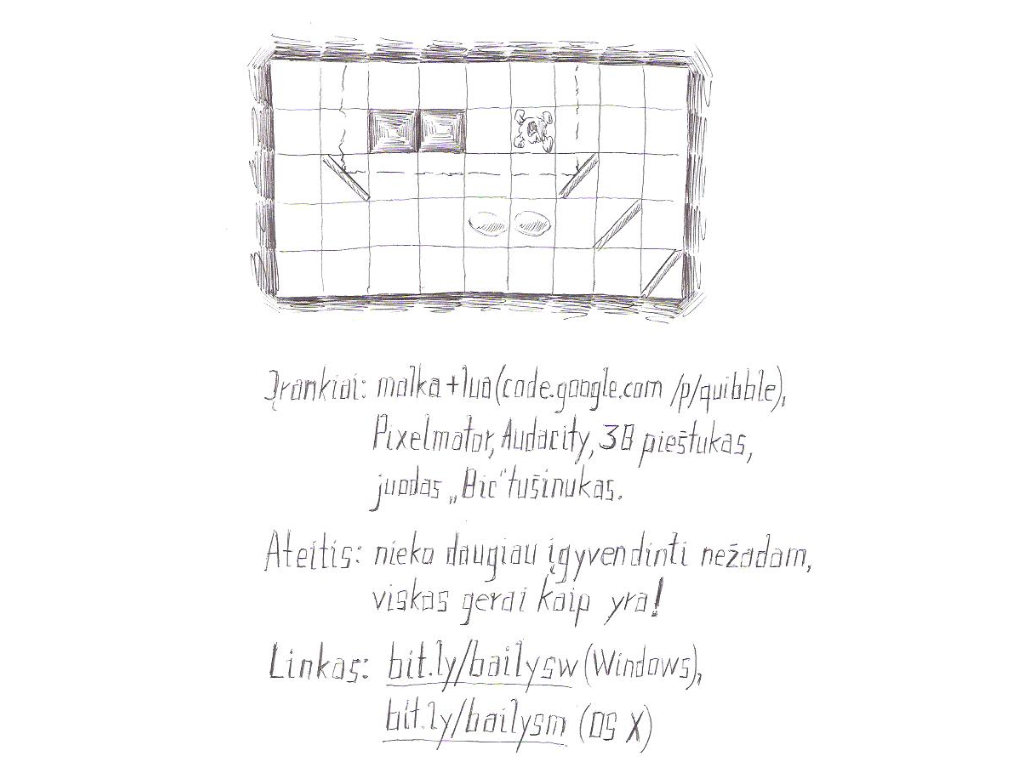 Įrankiai: malka+lua(code.google.com/p/quibble),
Pixelmator, Audacity, 3B pieštukas,
juodas „Bic“ tušinukas.
Ateitis: nieko daugiau įgyvendinti nežadam,
viskas gerai kaip yra!
Linkas: bit.ly/bailysw (Windows),
bit.ly/bailysm (OS X)